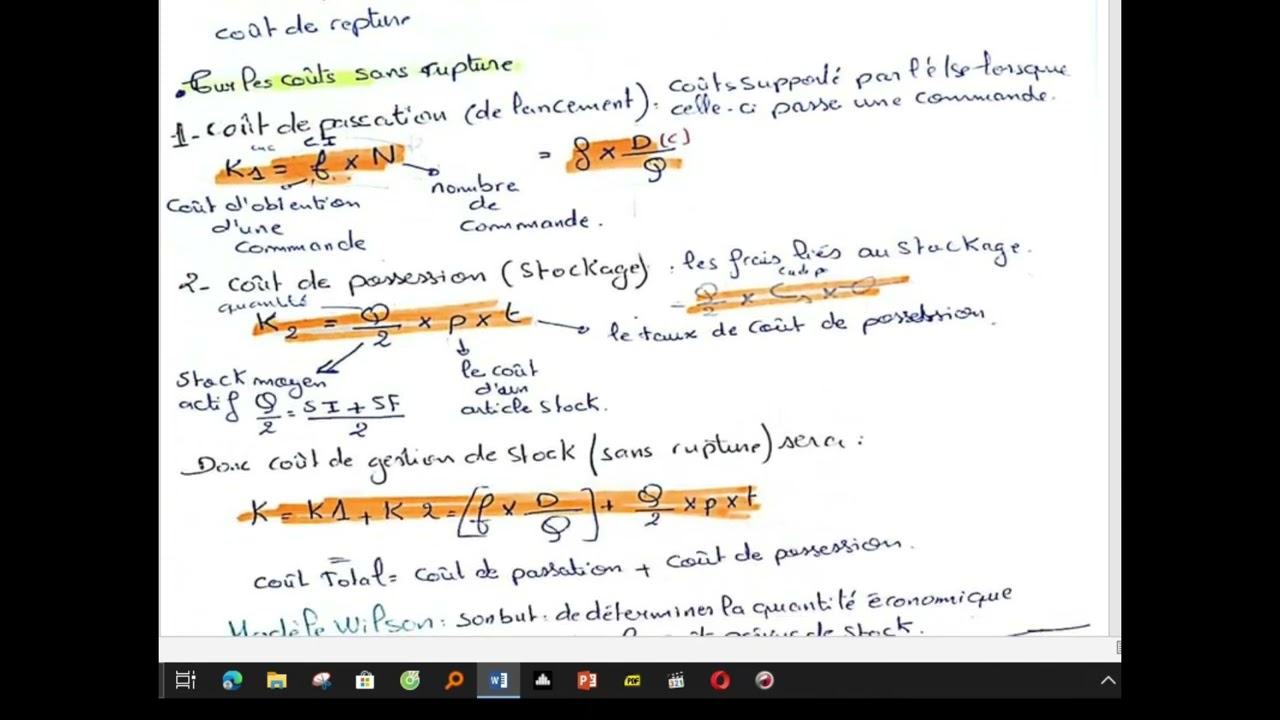 coût de repture
. Sur les coûts sans rupture
1- Coût de passation (de lancement) : coûts supporté par l'é/se lorsque
celle-ci passe une commande.
K1 = f x N = f x D(c)/Q
Coût d'obtention
d'une
commande
nombre
de
commande.
2- coût de possession (stockage) : les frais liés au stockage.
quantité
K2 = Q/2 x p x t
le taux de coût de possession.
Stock moyen
actif Q/2 = SI + SF/2
le coût
d'un
article stock.
Donc coût de gestion de stock (sans rupture) sera :
K = K1 + K2 = [f x D/Q] + Q/2 x p x t
coût Total = coût de passation + coût de possession.
Modèle Wilson : son but : de déterminer la quantité économique
de stock.